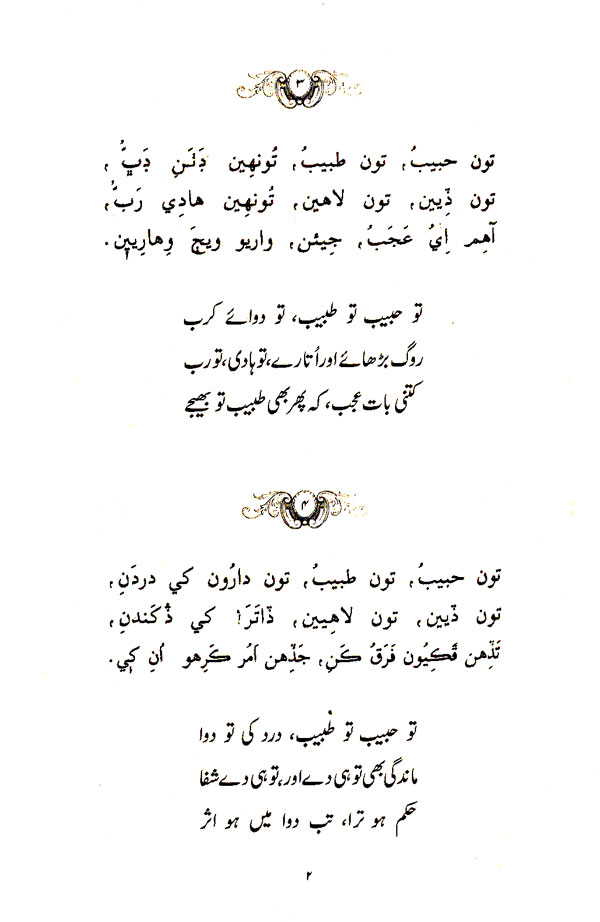 ۳
تون حبيبُ، تون طبيبُ، تُونهِين دَئنِ دَبُّ،
تون ڏِيين، تون لاهين، تُونهِين هادِي رَبُّ،
آهِم اِيُ عَجَبُ، جِيئن، واريو ويڄَ وِهارِيين.
تو حبیب تو طبیب، تو دوائے کرب
روگ بڑھائے اور اُتارے، تو ہادی، تو رب
کتنی بات عجب، کہ پھر بھی طبیب تو بھیجے
۴
تون حبيبُ، تون طبيبُ، تون دارُون کي دردَنِ،
تون ڏيين، تون لاهِيين، ڏاتَرَ! کي ڏُکَندنِ،
تَڏِهن ڦَڪِيُون فَرَقُ ڪَنِ، جَڏِهن اَمُر ڪَرِهو اُنِ کي.
تو حبیب تو طبیب، درد کی تو دوا
ماندگی بھی تو ہی دے اور، تو ہی دے شفا
حکم ہو ترا، تب دوا میں ہو اثر
۲